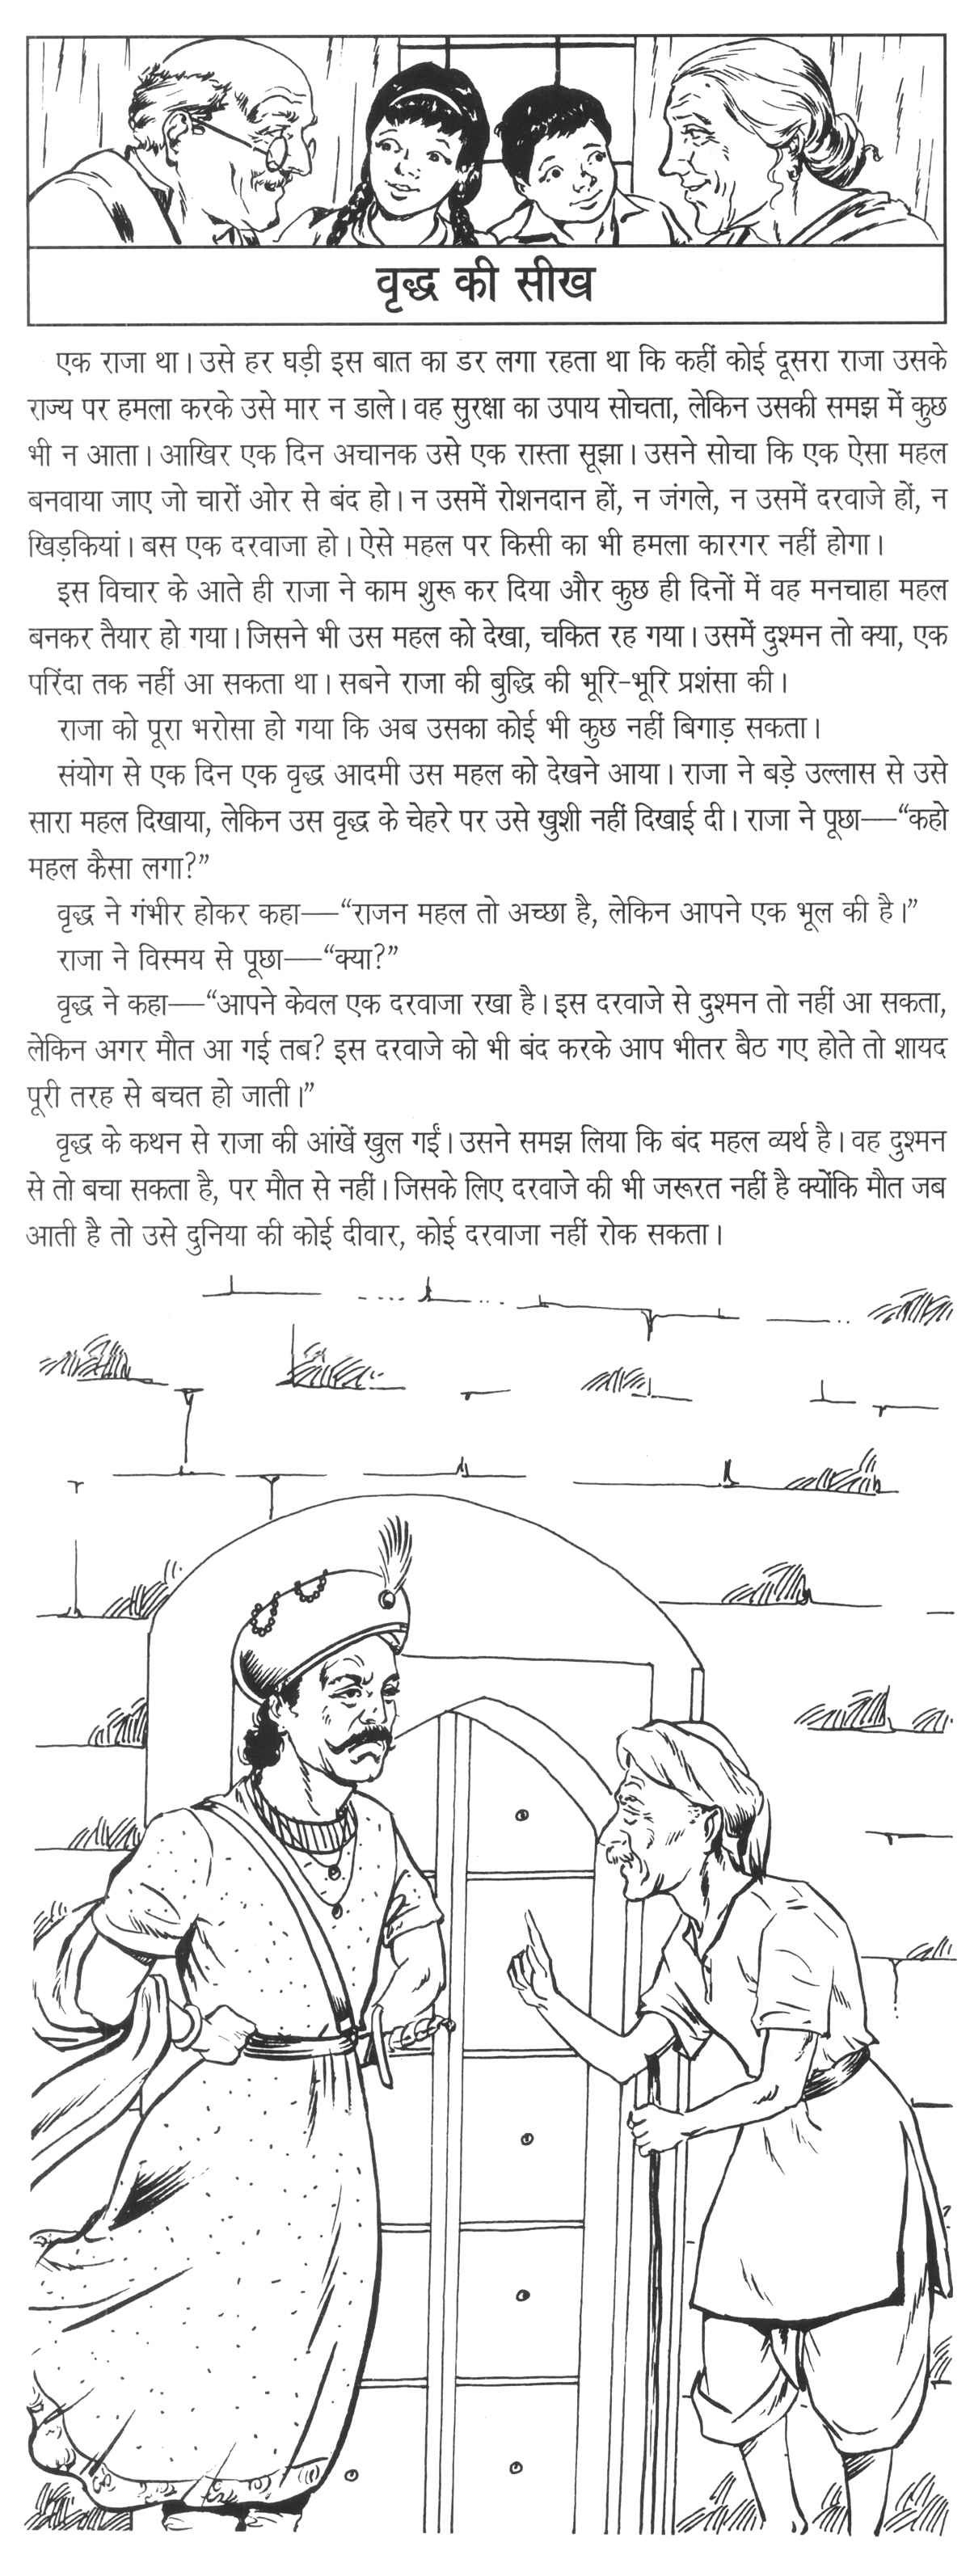 वृद्ध की सीख
एक राजा था। उसे हर घड़ी इस बात का डर लगा रहता था कि कहीं कोई दूसरा राजा उसके
राज्य पर हमला करके उसे मार न डाले। वह सुरक्षा का उपाय सोचता, लेकिन उसकी समझ में कुछ
भी न आता। आखिर एक दिन अचानक उसे एक रास्ता सूझा। उसने सोचा कि एक ऐसा महल
बनवाया जाए जो चारों ओर से बंद हो। न उसमें रोशनदान हों, न जंगले, न उसमें दरवाजे हों, न
खिड़कियां। बस एक दरवाजा हो। ऐसे महल पर किसी का भी हमला कारगर नहीं होगा।
इस विचार के आते ही राजा ने काम शुरू कर दिया और कुछ ही दिनों में वह मनचाहा महल
बनकर तैयार हो गया। जिसने भी उस महल को देखा, चकित रह गया। उसमें दुश्मन तो क्या, एक
परिंदा तक नहीं आ सकता था। सबने राजा की बुद्धि की भूरि-भूरि प्रशंसा की।
राजा को पूरा भरोसा हो गया कि अब उसका कोई भी कुछ नहीं बिगाड़ सकता।
संयोग से एक दिन एक वृद्ध आदमी उस महल को देखने आया। राजा ने बड़े उल्लास से उसे
सारा महल दिखाया, लेकिन उस वृद्ध के चेहरे पर उसे खुशी नहीं दिखाई दी। राजा ने पूछा—“कहो
महल कैसा लगा?”
वृद्ध ने गंभीर होकर कहा—“राजन महल तो अच्छा है, लेकिन आपने एक भूल की है।”
राजा ने विस्मय से पूछा—“क्या?”
वृद्ध ने कहा—“आपने केवल एक दरवाजा रखा है। इस दरवाजे से दुश्मन तो नहीं आ सकता,
लेकिन अगर मौत आ गई तब? इस दरवाजे को भी बंद करके आप भीतर बैठ गए होते तो शायद
पूरी तरह से बचत हो जाती।”
वृद्ध के कथन से राजा की आंखें खुल गईं। उसने समझ लिया कि बंद महल व्यर्थ है। वह दुश्मन
से तो बचा सकता है, पर मौत से नहीं। जिसके लिए दरवाजे की भी जरूरत नहीं है क्योंकि मौत जब
आती है तो उसे दुनिया की कोई दीवार, कोई दरवाजा नहीं रोक सकता।